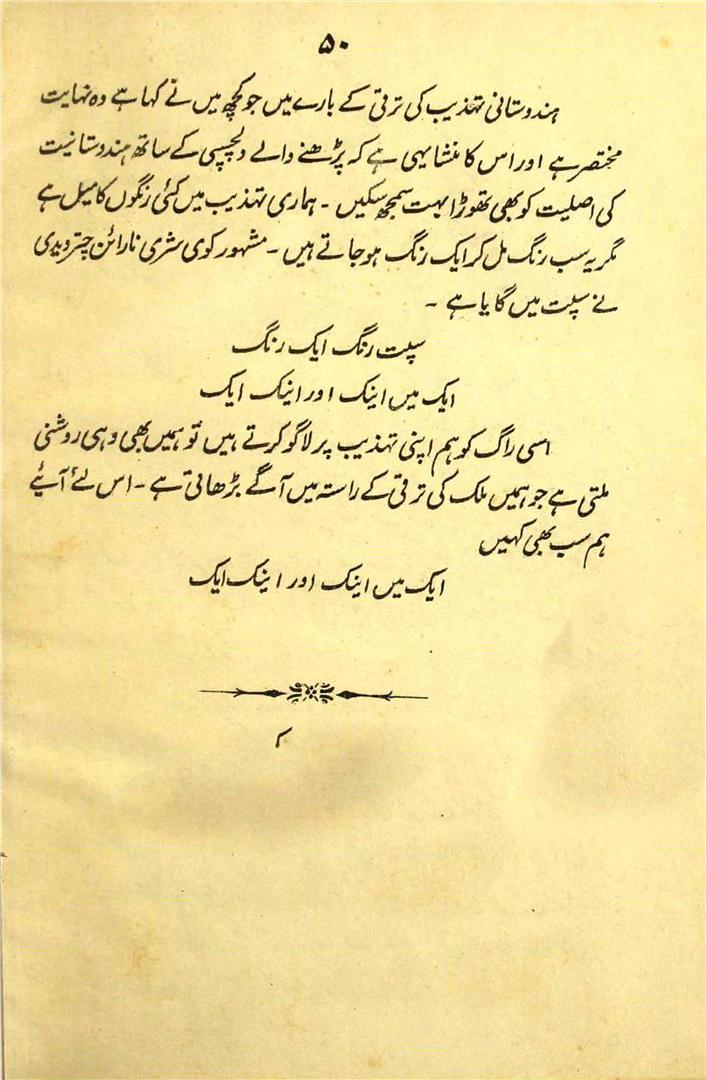 ۵۰
ہندوستانی تہذیب کی ترقی کے بارے میں جو کچھ میں نے کہا ہے وہ نہایت
مختصر ہے اور اس کا منشا یہی ہے کہ پڑھنے والے دلچسپی کے ساتھ ہندوستانیت
کی اصلیت کو بھی تھوڑا بہت سمجھ سکیں ۔ ہماری تہذیب میں کئی رنگوں کا میل ہے
مگر یہ سب رنگ مل کر ایک رنگ ہو جاتے ہیں ۔ مشہور کوی سری نارائن چترویدی
نے سپت میں گایا ہے ۔
سپت رنگ ایک رنگ
ایک میں اینک اور اینک ایک
اسی راگ کو ہم اپنی تہذیب پر لاگو کرتے ہیں تو ہمیں بھی وہی روشنی
ملتی ہے جو ہمیں ملک کی ترقی کے راستہ میں آگے بڑھاتی ہے ۔ اس لئے آیئے
ہم سب بھی کہیں
ایک میں اینک اور اینک ایک